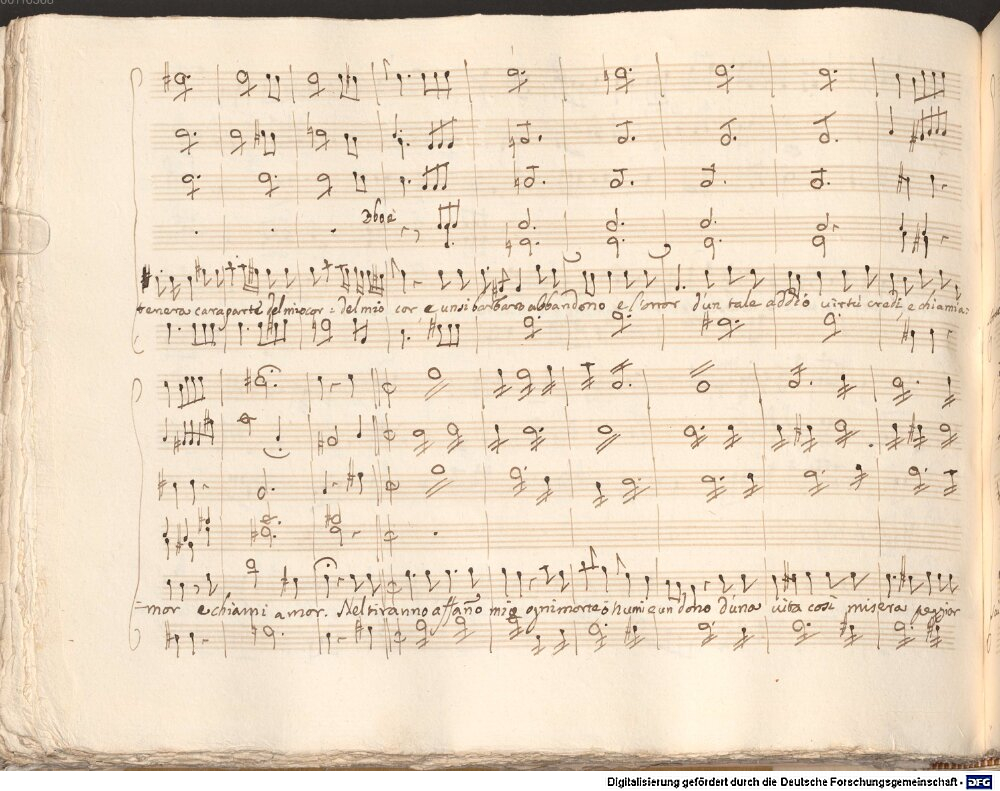 Oboè
tenera cara parte del mio cor: del mio cor e un si barbaro abbandono e l'orror d'un tale addio virtù credi, e chiami a:
=mor e chiami amor. Nel tiranno affanno mio ogni morte ò numi e un dono d'una vita così misera peggior
Digitalisierung gefördert durch die Deutsche Forschungsgemeinschaft - DFG